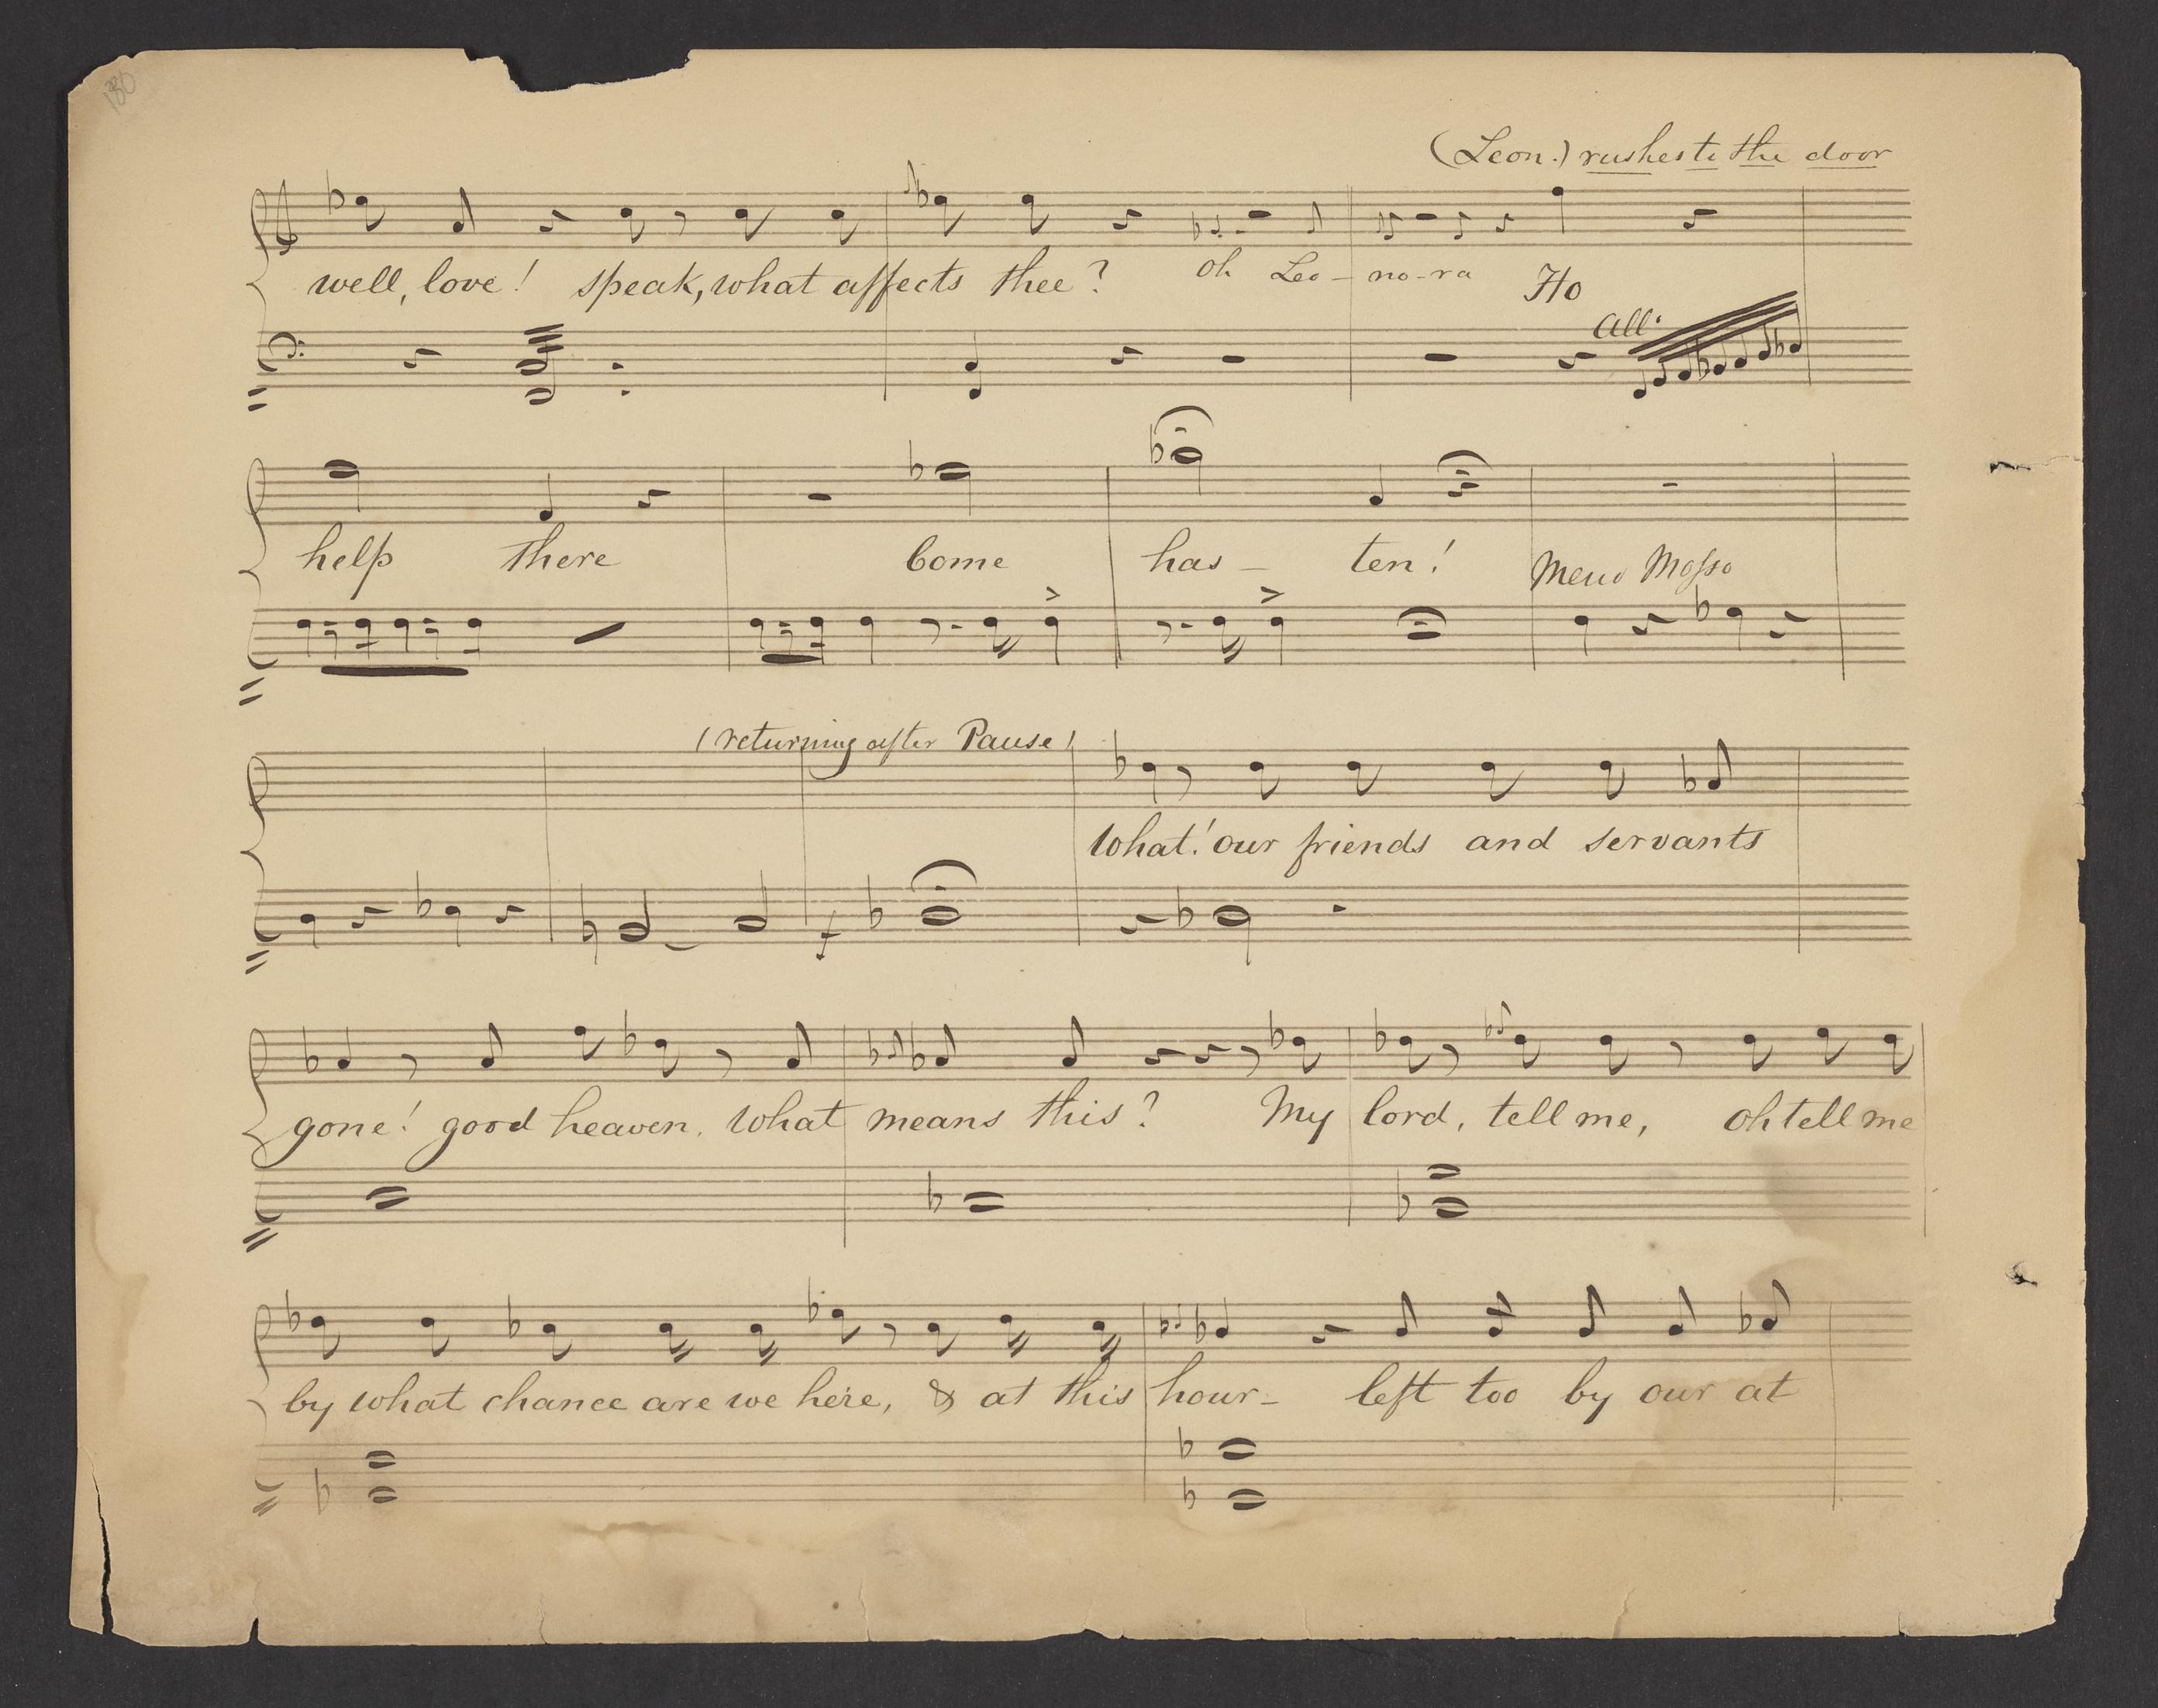 180
(Leon.) rushes to the door
well, love! speak, what affects thee? oh Leo - no - ra Ho
All:
help there Come has - ten! Meno Mosso
(returning after Pause)
What! our friends and servants
f
gone! good heaven, what means this? My lord, tell me, oh tell me
by what chance are we here, & at this hour - left too by our at